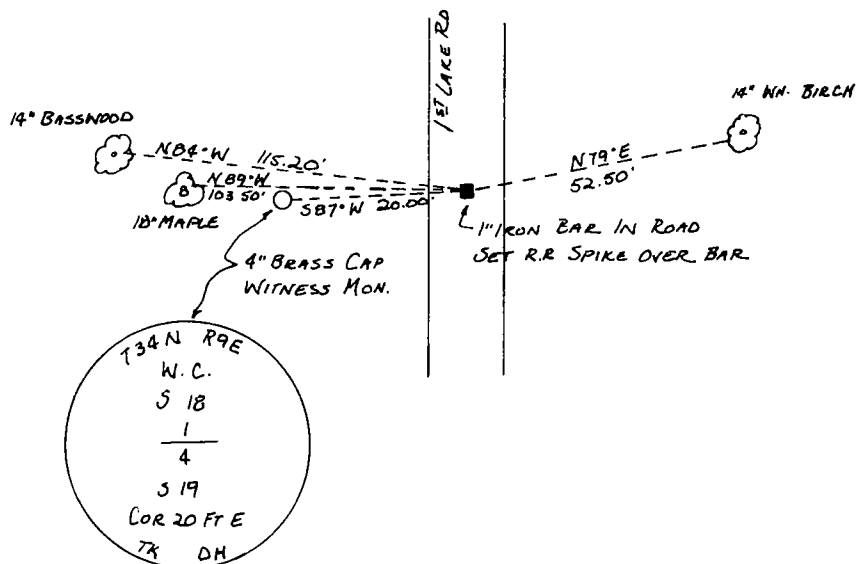 1ST LAKE RD
14" BASSWOOD
14" WH. BIRCH
N84°W 115.20'
N89°W
103.50'
10" MAPLE
S87°W 20.00'
N79°E
52.50'
1" IRON BAR IN ROAD
SET R.R SPIKE OVER BAR
4" BRASS CAP
WITNESS MON.
T34N R9E
W.C.
S 18
1
4
S 19
COR 20 FT E
TK DH